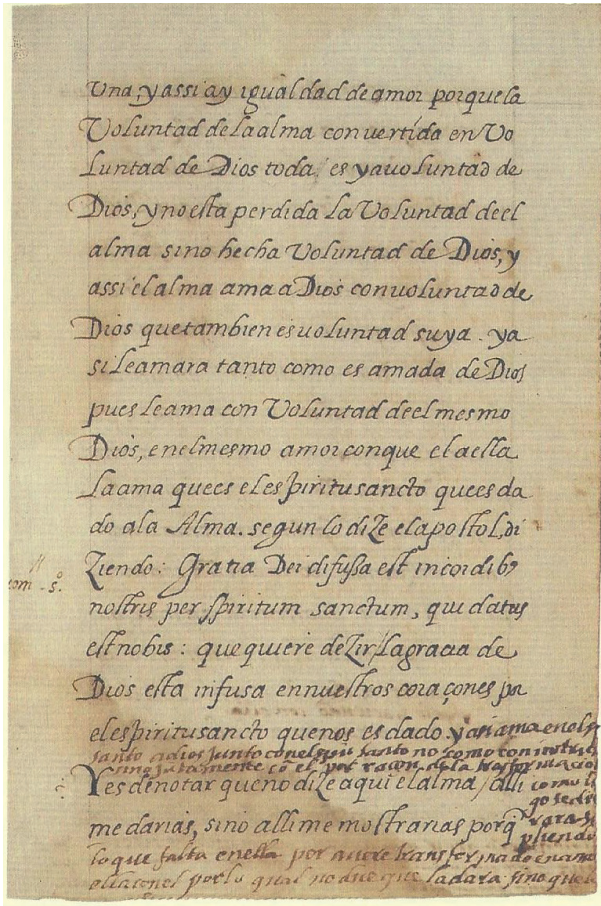 Una, y assi ay igualdad de amor porque la
Voluntad de la alma convertida en Vo
luntad de Dios toda/ es ya voluntad de
Dios, y no esta perdida la Voluntad de el
alma sino hecha Voluntad de Dios, y
assi el alma ama a Dios con voluntad de
Dios que tambien es voluntad suya. ya
si le amara tanto como es amada de Dios
pues le ama con Voluntad de el mesmo
Dios, en el mesmo amor con que el a ella
la ama que es el espiritu sancto que es da
do a la Alma. segun lo dize el apostol, di
ziendo: Gratia Dei difussa est in cordibꝰ
Rom. 5.
nostris per spiritum sanctum, qui datus
est nobis: que quiere dezir/ la gracia de
Dios esta infusa en nuestros coraçones por
el espiritu sancto que nos es dado. y asi ama en el
santo a dios junto con el santo no como con
juntamente cō el por raçon de la trasformacion
Y es de notar que no dize aqui el alma/ alli
como
me darias, sino alli me mostrarias porq̄
pliendo
lo que falta en ella por aver transformado en amor
con el por lo qual no dice que la dara sino que